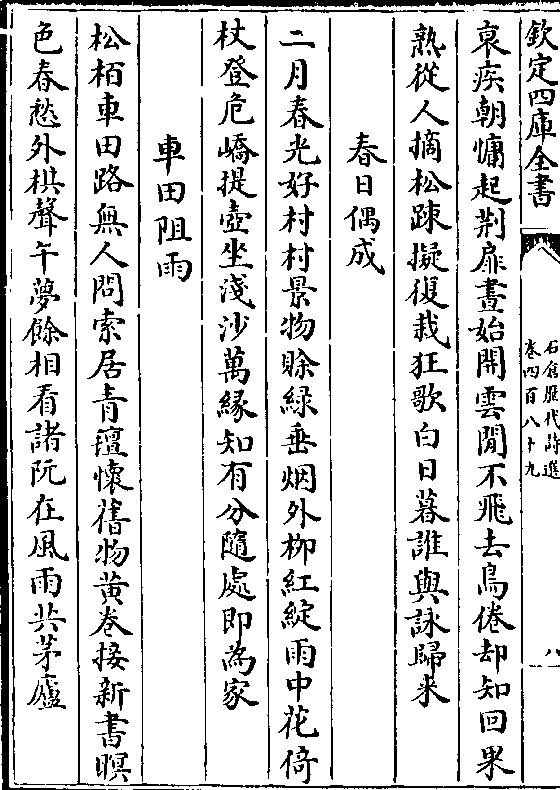 欽定四庫全書
石倉歷代詩選
卷四百八十九
八
衰疾朝慵起荆扉晝始開雲閒不飛去鳥倦却知回果
熟從人摘松踈擬復栽狂歌白日暮誰與詠歸来
春日偶成
二月春光好村村景物賒緑垂烟外柳紅綻雨中花倚
杖登危嶠提壺坐淺沙萬緣知有分隨處即為家
車田阻雨
松栢車田路無人問索居青氊懷舊物黄卷接新書暝
色春愁外棋聲午夢餘相看諸阮在風雨共茅廬